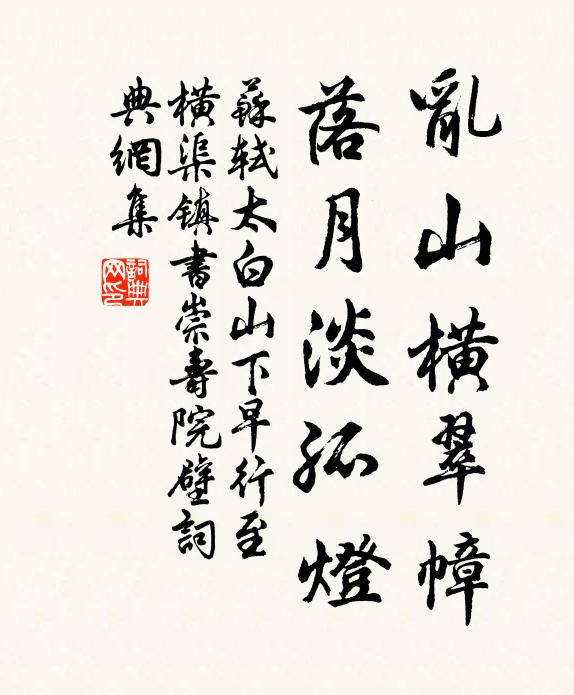 亂山橫翠幛
落月淡孤燈
蘇軾太白山下早行至
橫渠镇書崇壽院壁詞
典網集
詞典
网印